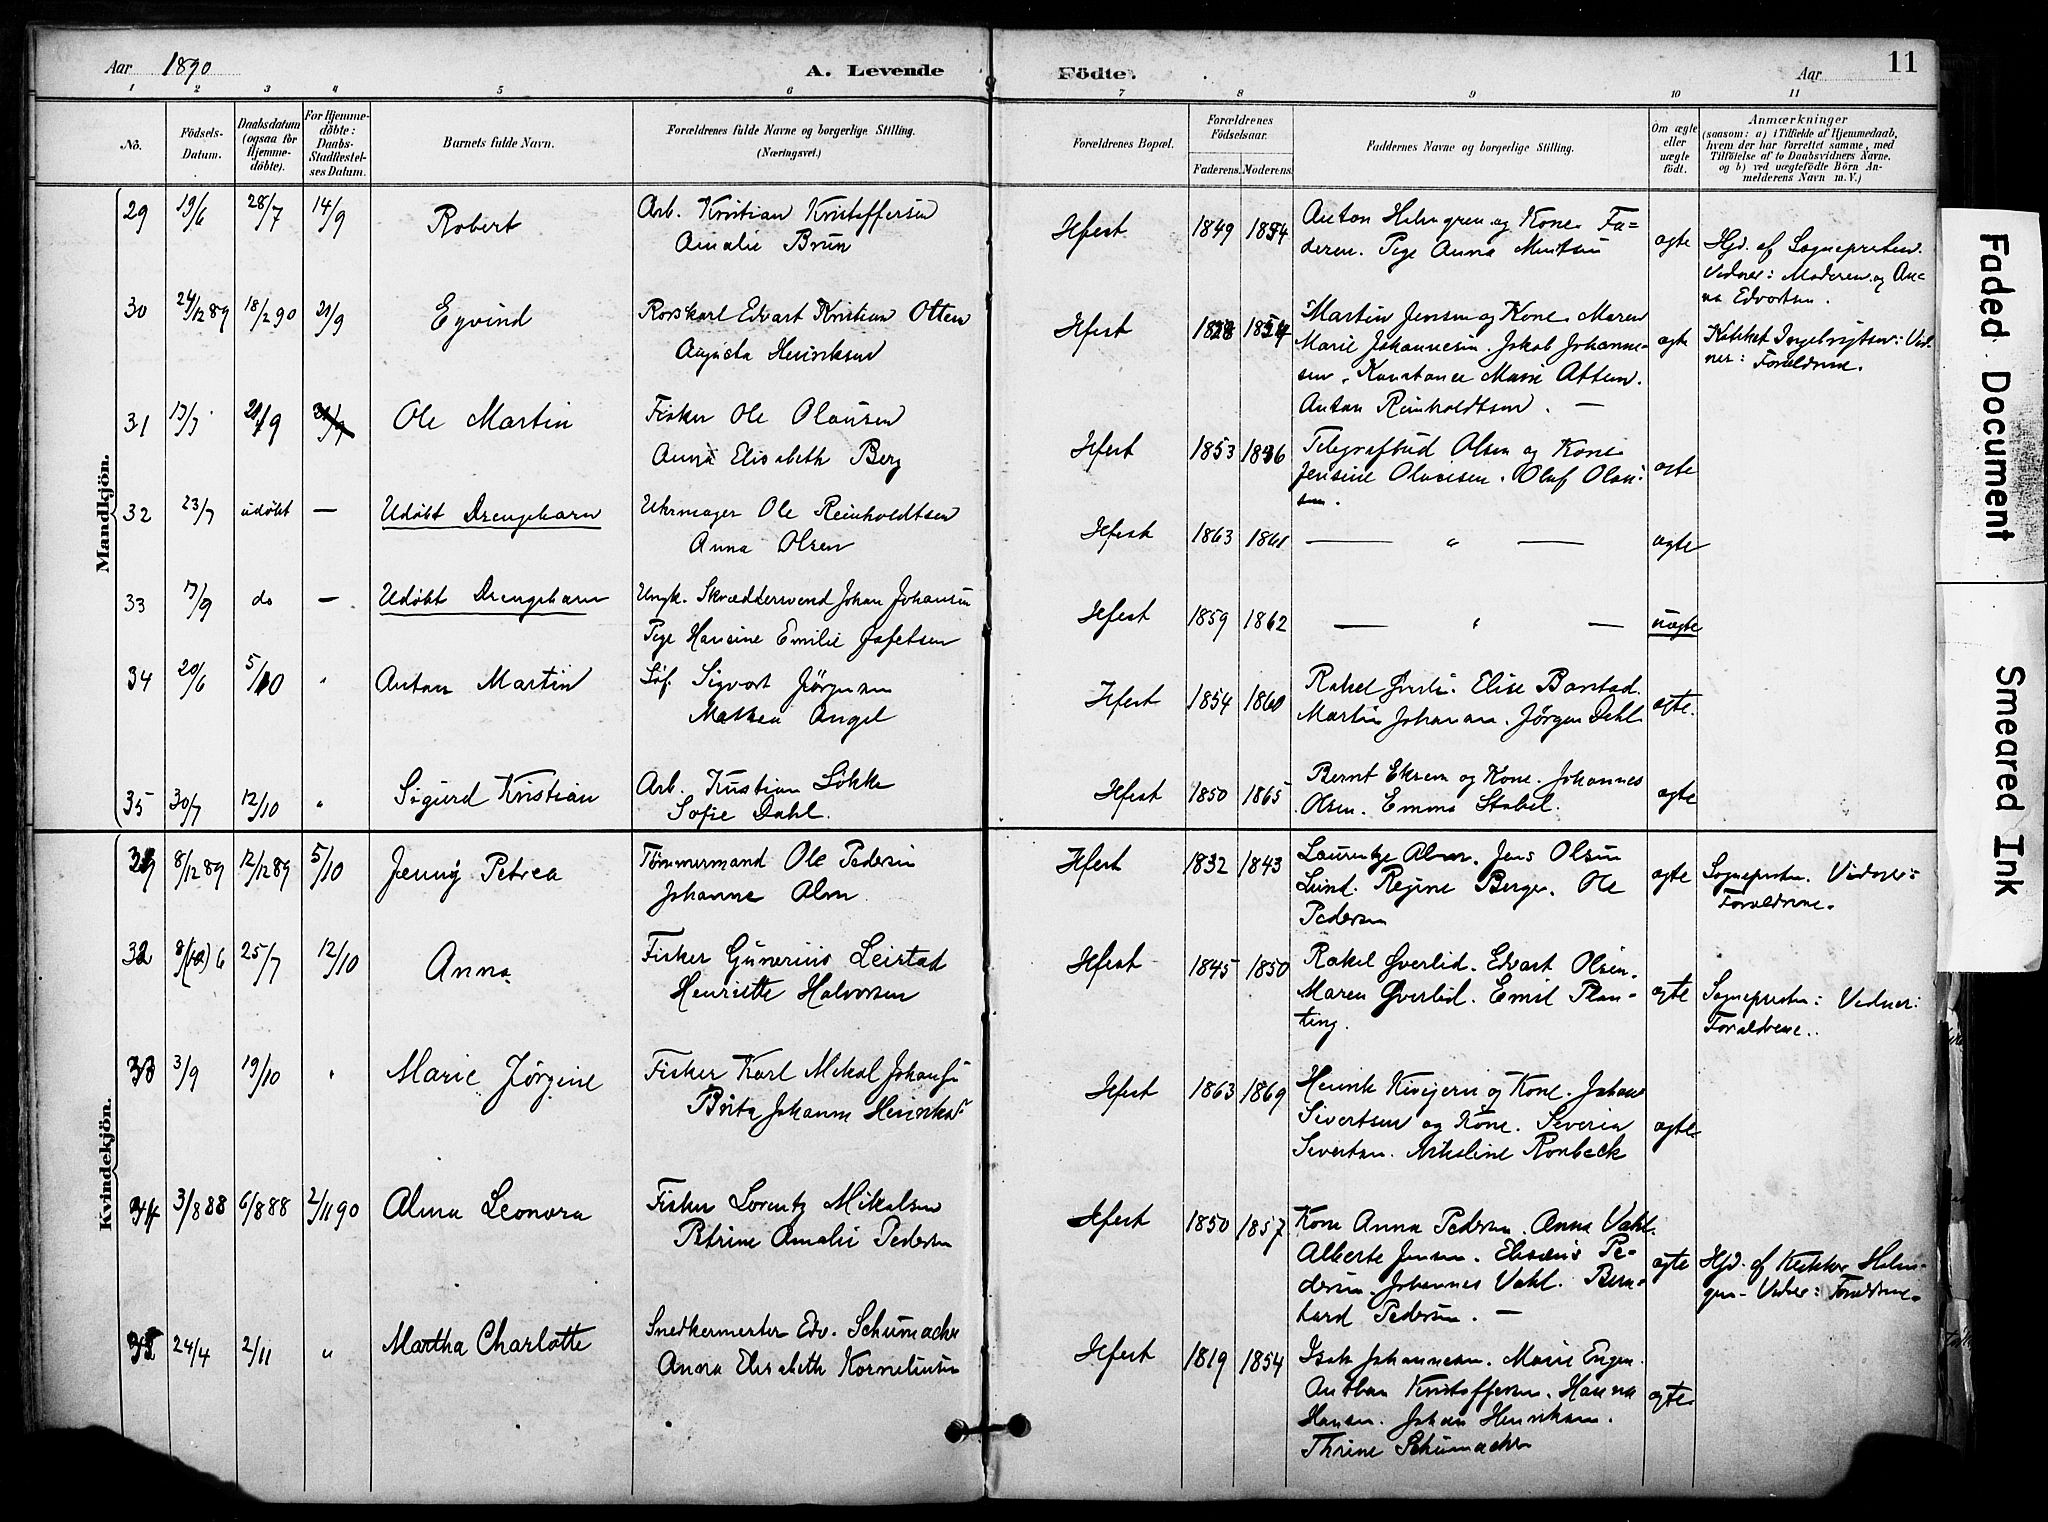 Aar 1890
A. Levende Födte.
Aar
11
1 2 3 4 5 6 7 8 9 10 11
No.
Födsels-Datum.
Daabsdatum (ogsaa for Hjemme-döbte).
For Hjemme-döbte: Daabs-Stadfæstel-ses Datum.
Barnets fulde Navn.
Forældrenes fulde Navne og borgerlige Stilling.
(Næringsvei.)
Forældrenes Bopæl.
Forældrenes Födselsaar.
Faderens. Moderens.
Faddernes Navne og borgerlige Stilling.
Om ægte eller uægte födt.
Anmærkninger
(saasom: a) i Tilfælde af Hjemmedaab,
hvem der har forrettet samme, med
Tilföielse af to Daabsvidners Navne,
og b) ved uægtefödte Börn An-
melderens Navn m. V.)
Mandkjön.
29 19/6 28/7 14/9 Robert
Arb. Kristian Kristoffersen
Amalie Brun
Hfest 1849 1854
Anton Holmgren og Kone. Fa-
deren. Pige Anna
ægte
Hjd. af Sognepresten.
Vidner: Moderen og An-
na Edvartsen.
30 24/12 89 18/2 90 21/9 Eyvind
Edvart Kristian Otten
Augusta Henriksen
Hfest
Martin Jensen og Kone. Maren
Marie Johannesen. Jakob Johanne-
sen. Konstance Marie Ottem.
Anton Reinholdtsen. —
ægte
Kateket Ingebrigtsen: Vid-
ner: Forældrene.
31 13/7 21/9 Ole Martin
Fisker Ole Olausen
Anna Elisabeth Berg
Hfest 1853
Telegrafbud Olsen og Kone
Jensine Olausen. Oluf Olau-
sen.
ægte
32 23/7 udöbt — Udöbt Drengebarn
Uhrmager Ole Reinholdtsen
Anna Olsen
Hfest 1863 1861 — " — ægte
33 17/9 do — Udöbt Drengebarn
Ungk. Skræddersvend Johan Johansen
Pige Hansine Emilie Jafetsen
Hfest 1859 1862 — " — uægte
34 20/6 5/10 " Anton Martin
Löf. Sigvart Jörgensen
Mathea Angel
Hfest 1854 1860
Rakel Øverli. Elise Barstad.
Martin Johansen. Jörgen Dahl
ægte.
35 30/7 12/10 " Sigurd Kristian
Arb. Kristian Lökke
Sofie Dahl.
Hfest 1850 1865
Bernt Eksem og Kone. Johannes
Olsen. Emma Stabel.
ægte
Kvindekjön.
8/12 89 12/12 89 5/10 Jenny Petrea
Tömmermand Ole Pedersen
Johanne Alm.
Hfest 1832 1843
Laurentze Alm. Jens Olsen
Lund. Regine Berger. Ole
Pedersen
ægte
Sognepresten. Vidner:
Forældrene.
32 8/(12) 6 25/7 12/10 Anna
Fisker Gunerius Leistad
Henriette Halvorsen
Hfest 1845 1850
Rakel Øverlid. Edvart Olsen.
Maren Øverlid. Emil Plan-
ting.
ægte
Sognepresten: Vidner:
Forældrene.
33 3/9 19/10 " Marie Jörgine
Fisker Karl Mikal Johansen
Brita Johanne
Hfest 1863 1869
Henrik Kivijervi og Kone. Johan
Sivertsen og Kone. Severin
Sivertsen. Nikoline Rönbeck
ægte
34 3/8 88 6/8 88 2/11 90 Alma Leonora
Fisker Lorentz Mikalsen
Petrine Amalie Pedersen
Hfest 1850 1857
Kone Anna Pedersen. Anna Vahl.
Alberte Jensen. Elisæus Pe-
dersen. Johannes Vahl. Bern-
hard Pedersen. —
ægte
Hjd. af Klokker Holm-
gren. Vidner: Forældrene.
35 24/4 2/11 " Martha Charlotte
Snedkermester Edv. Schumacher
Anna Elisabeth Korneliusen
Hfest 1819 1854
Isak Johannesen. Marie Engen.
Anthon Kristoffersen. Hanna
Hansen. Johan Henriksen.
Thrine Schumacher
ægte
Faded Document
Smeared Ink